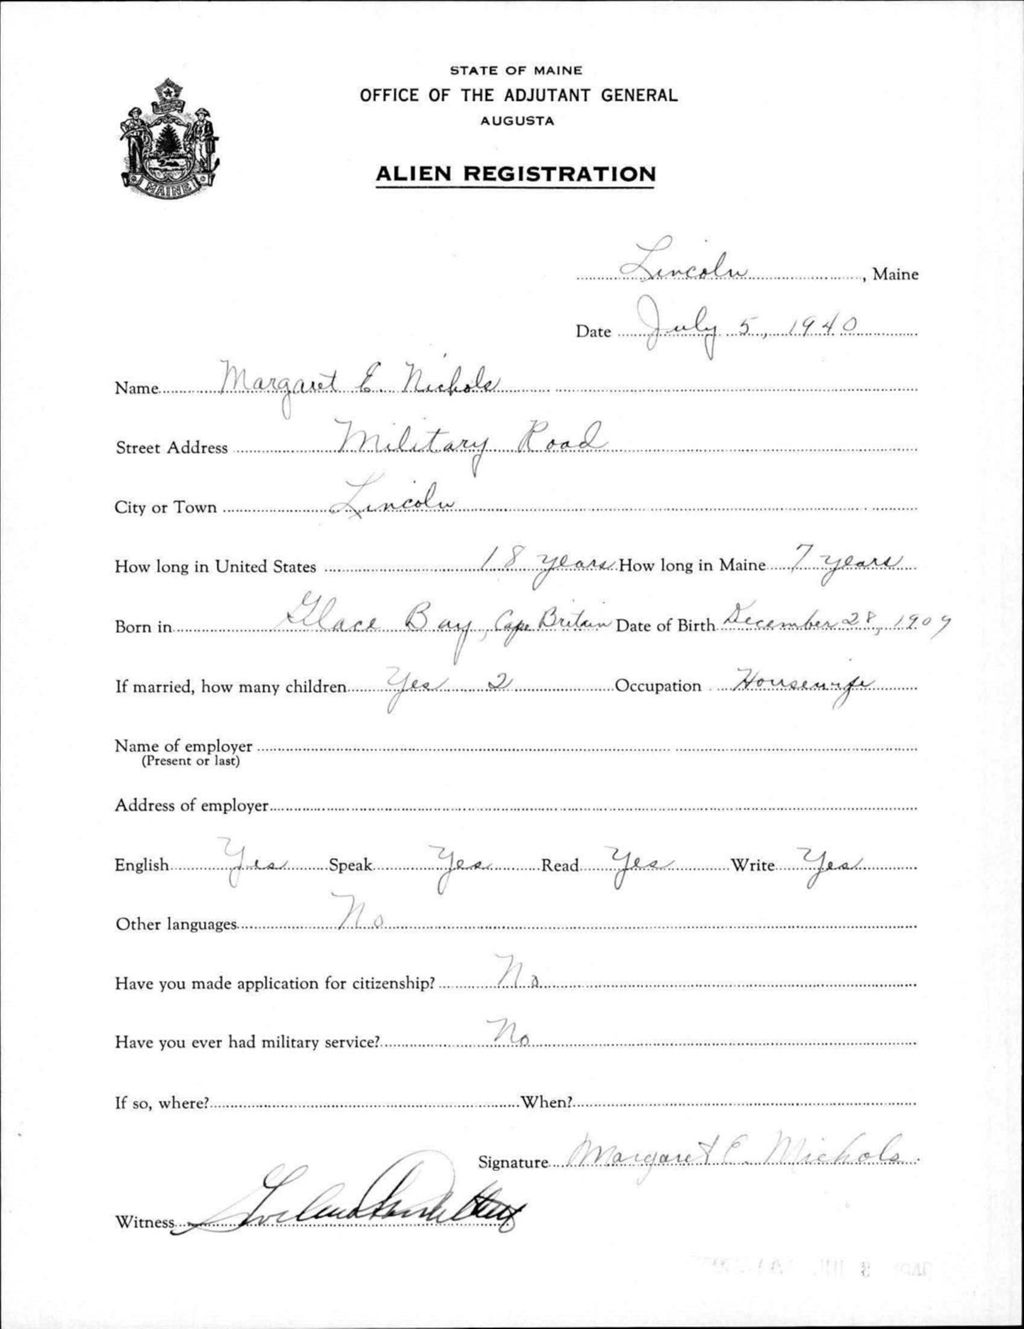 STATE OF MAINE
OFFICE OF THE ADJUTANT GENERAL
AUGUSTA
ALIEN REGISTRATION
MAINE
Lincoln, Maine
Date July 5, 1940
Name Margaret E. Nichols
Street Address Military Road
City or Town Lincoln
How long in United States 18 years How long in Maine 7 years
Born in Glace Bay, Cape Britain Date of Birth December 28, 1909
If married, how many children Yes 2 Occupation Housewife
Name of employer
(Present or last)
Address of employer
English Yes Speak Yes Read Yes Write Yes
Other languages No
Have you made application for citizenship? No
Have you ever had military service? No
If so, where? When?
Signature Margaret E. Nichols
Witness